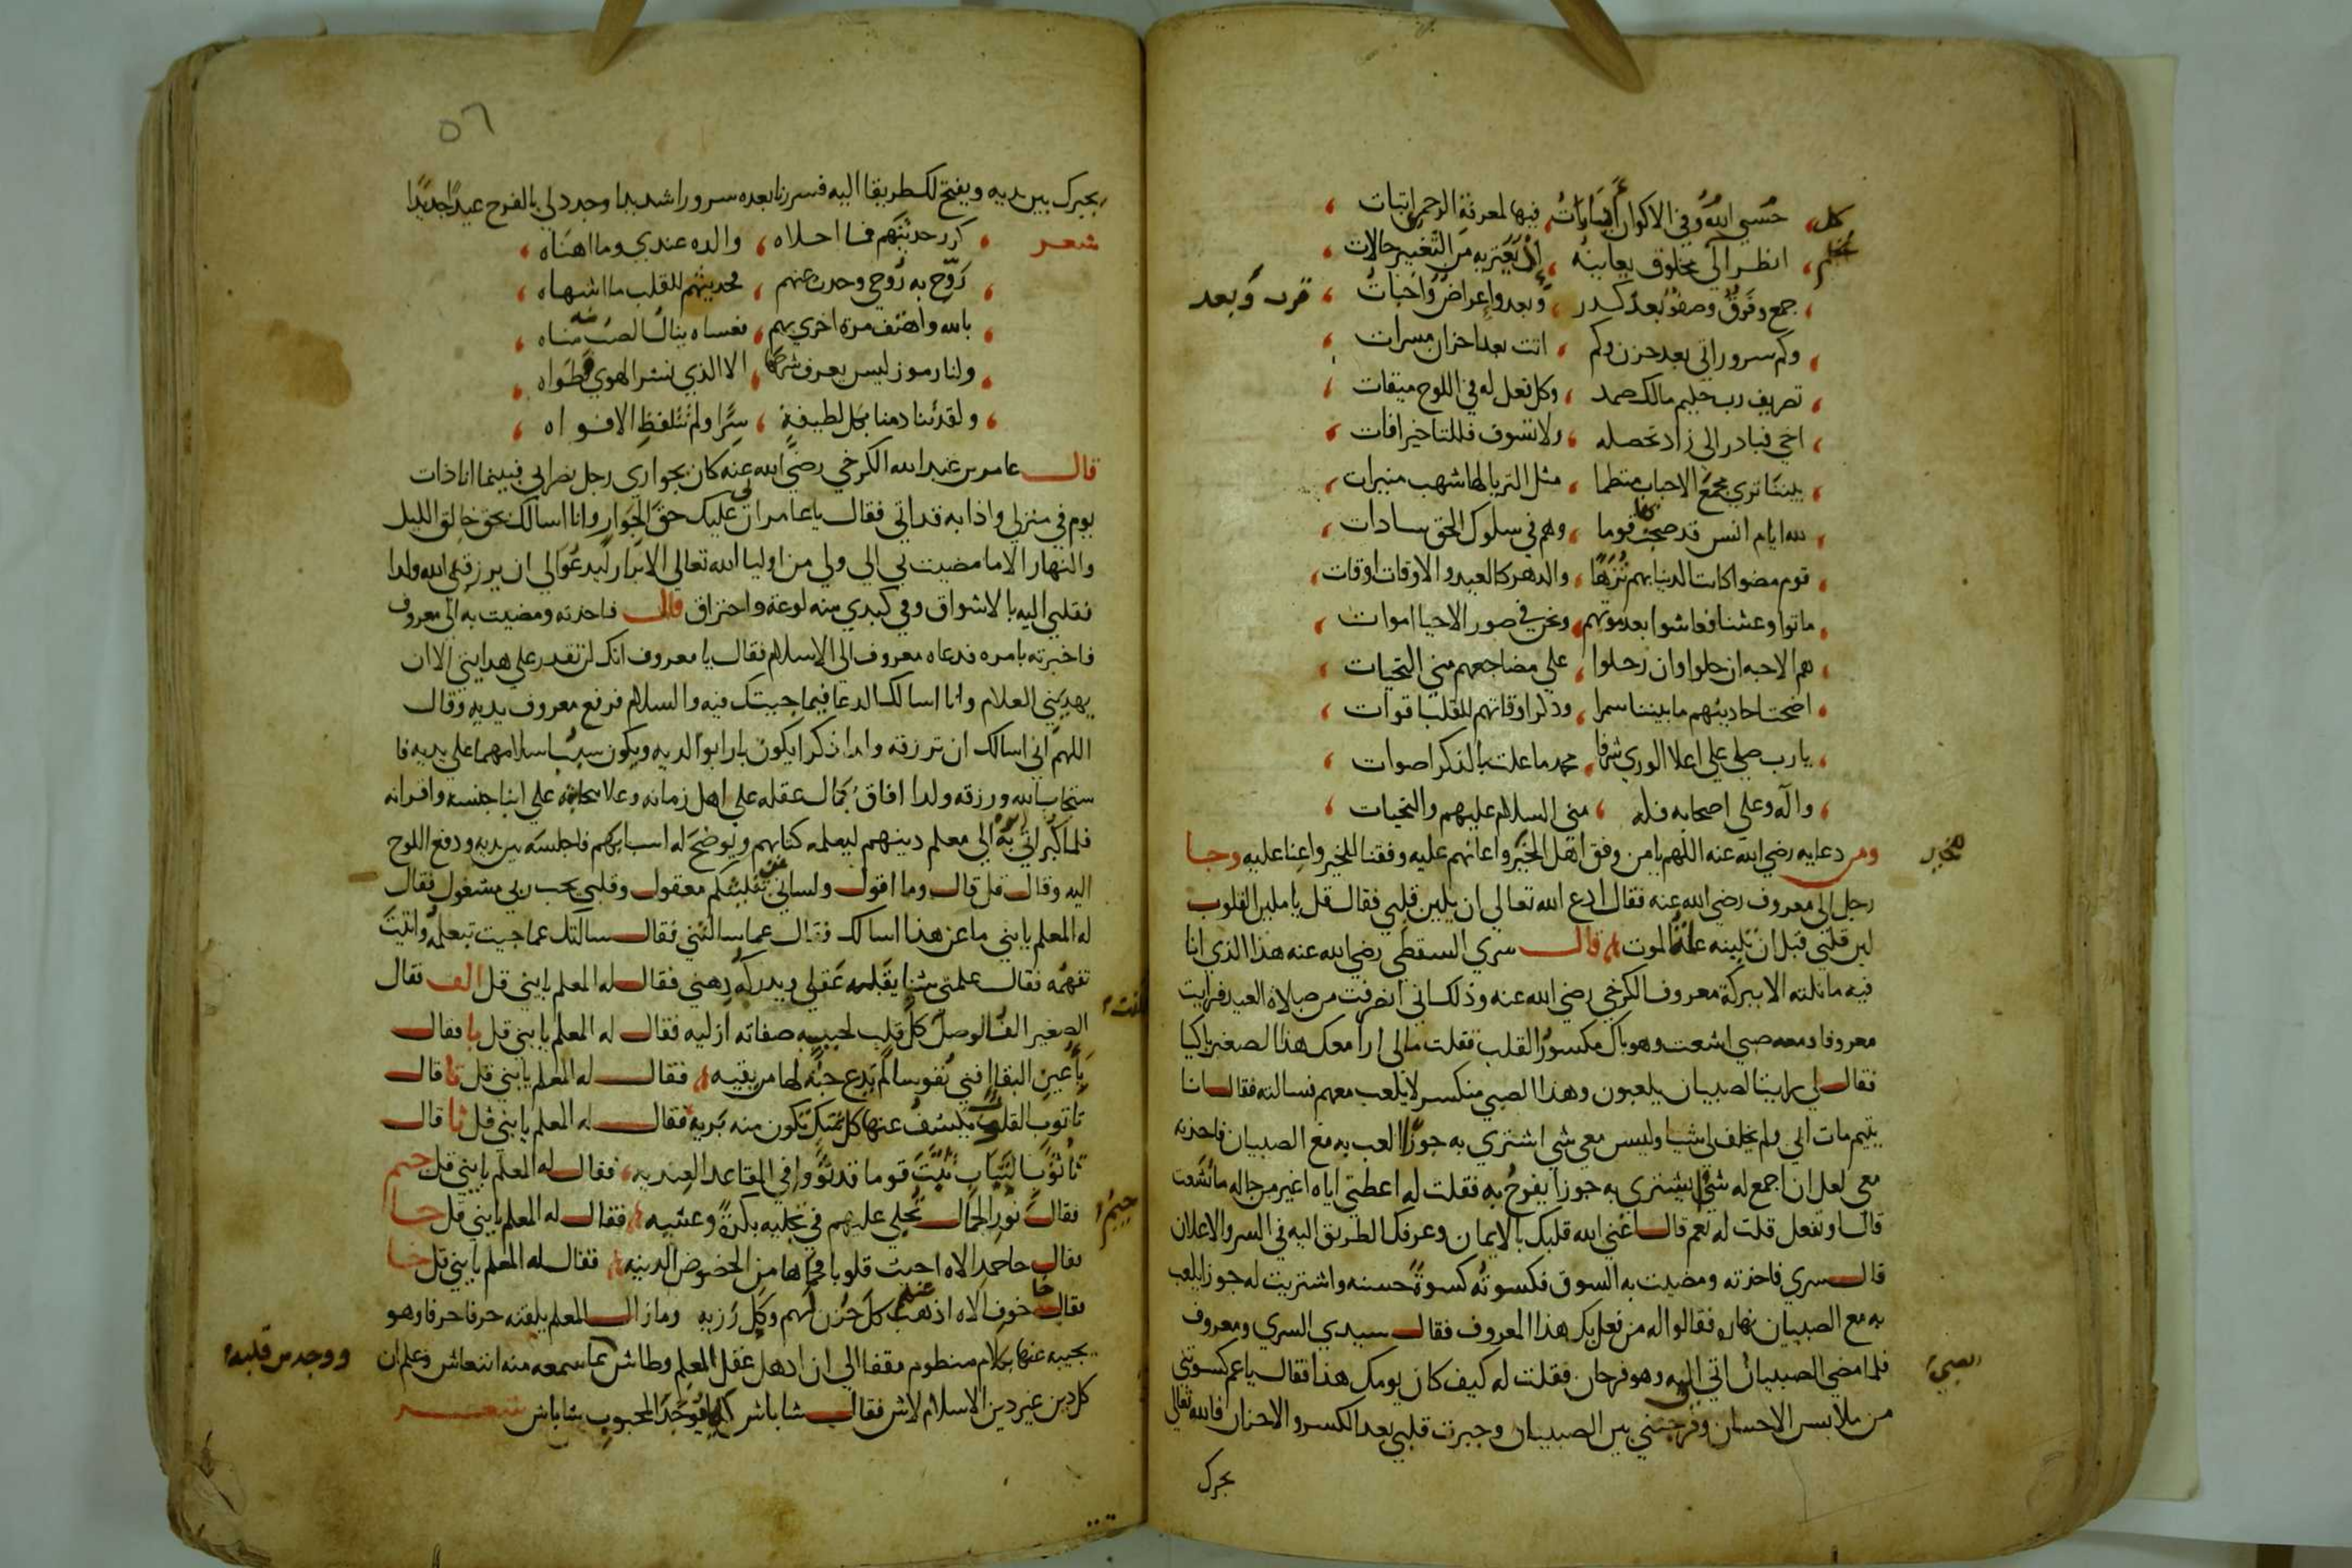 حسبي الله وفي الاكوان ايات فيها لمعرفة الرحمن اثبات
انظر الي مخلوق يعاينه اذ يعتريه من التغيير حالات
جمع وفرق وصفو بعد كدر وبعد واعراض واخبات
قرب وبعد
وكم سرور اتي بعد حزن وكم اتت بعد احزان مسرات
تصريف رب حليم مالك صمد وكل فعل له في اللوح ميقات
اخي فبادر الي زاد تحصله ولا تسوف فللتاخير افات
بيننا تري مجمع الاحباب منتظما مثل الثريا لها شهب منيرات
لله ايام انس قد صحبت قوما وهم في سلوك الحق سادات
قوم مضوا كانت الدنيا بهم نزها والدهر كالعيد والاوقات اوقات
ماتوا وعشنا فعاشوا بعد موتهم ونحن في صور الاحيا اموات
هم الاحبه ان حلوا وان رحلوا علي مضاجعهم مني التحيات
اضحت احاديثهم ما بيننا سمرا وذكر اوقاتهم للقلب اقوات
يا رب صلي علي اعلا الوري شرفا محمد ما علت بالذكر اصوات
واله وعلي اصحابه فله مني السلام عليهم والتحيات
ومن دعايه رضي الله عنه اللهم يا من وفق اهل الخير واعانهم عليه وفقنا للخير واعنا عليه وجا
رجل الي معروف رضي الله عنه فقال ادع الله تعالي ان يلين قلبي فقال قل يا ملين القلوب
لين قلبي قبل ان تلينه عند الموت قال سري السقطي رضي الله عنه هذا الذي انا
فيه ما نلته الا ببركة معروف الكرخي رضي الله عنه وذلك اني انصرفت من صلاة العيد فرايت
معروفا ومعه صبي اشعت وهو باك مكسور القلب فقلت مالي ارا معك هذا الصغير باكيا
فقال لي رايت الصبيان يلعبون وهذا الصبي منكسر لا يلعب معهم فسالته فقال انا
يتيم مات ابي ولم يخلف لي شيا وليس معي شي اشتري به جوزا العب به مع الصبيان فاخذته
معي لعل ان اجمع له شيا يشتري به جوزا يفرح به فقلت له اعطني اياه اغير من حاله ما تشعت
قال او تفعل قلت له نعم قال اغني الله قلبك بالايمان وعرفك الطريق اليه في السر والاعلان
قال سري فاخذته ومضيت به السوق فكسوته كسوة حسنه واشتريت له جوزا يلعب
به مع الصبيان نهاره فقالوا له من فعل بك هذا المعروف فقال سيدي السري ومعروف
فلما مضي الصبيان اتي اليه وهو فرحان فقلت له كيف كان يومك هذا فقال يا عم كسوتني
من ملابس الاحسان وفرحتني بين الصبيان وجبرت قلبي بعد الكسر والاحزان فالله تعالي
يجبرك
٥٦
يجبرك بين يديه ويفتح لك طريقا اليه فسررنا بعده سرورا شديدا وجدد لي بالفرح عيدا جديدا
شعر كرر حديثهم فما احلاه والده عندي وما اهناه
روح به روحي وحدث عنهم فحديثهم للقلب ما اشهاه
بالله واهتف مرة اخري بهم فعساه ينال الصب مناه
ولنا رموز ليس يعرف شرحها الا الذي نشر الهوي وطواه
ولقد تنادمنا بكل لطيفة سرا ولم تتلفظ الافواه
قال عامر بن عبد الله الكرخي رضي الله عنه كان بجواري رجل نصراني فبينما انا ذات
يوم في منزلي واذا به قد اتي فقال يا عامر ان لي عليك حق الجوار وانا اسالك بحق خالق الليل
والنهار الا ما مضيت بي الي ولي من اوليا الله تعالي الابرار ليدعوا لي ان يرزقني الله ولدا
فقلبي اليه بالاشواق وفي كبدي منه لوعة واحتراق قال فاخذته ومضيت به الي معروف
فاخبرته بامره فدعاه معروف الي الاسلام فقال يا معروف انك لن تقدر علي هدايتي الا ان
يهديني العلام وانا اسالك الدعا فيما جيتك فيه والسلام فرفع معروف يديه وقال
اللهم اني اسالك ان ترزقه ولدا ذكرا يكون بارا بوالديه ويكون سبب اسلامهما علي يديه فا
ستجاب الله ورزقه ولدا افاق بكمال عقله علي اهل زمانه وعلا علي ابنا جنسه واقرانه
فلما كبر اتي به ابوه الي معلم دينهم ليعلمه كتابهم ويوضح له اسبابهم فاجلسه بين يديه ودفع اللوح
اليه وقال قل قال وما اقول ولساني عن تثليثكم معقول وقلبي بحب ربي مشغول فقال
له المعلم يا بني ما عن هذا اسالك فقال عما سالتني فقال سالتك عما جيت تتعلمه واتيت
تفهمه فقال علمني شيا يقبله عقلي ويدركه ذهني فقال له المعلم يا بني قل الف فقال
الصغير الف الوصل كل قلب لحبيبه صفاته ازليه فقال له المعلم يا بني قل با فقال
با عين البقا افني نفوسا لم يدع حبه لها من بقيه فقال له المعلم يا بني قل تا قال
تا توب القلوب يكشف عنها كل شك تكون منه بريه فقال له المعلم يا بني قل ثا قال
ثا ثوب الثياب ثبت قوما قد ثووا في المقاعد العنديه فقال له المعلم يا بني قل جيم
فقال نور الجمال تجلي عليهم في تجليه بكرة وعشيه فقال له المعلم يا بني قل حا
فقال حا حمد الاه احيت قلوبا من الخضوض الدينه فقال له المعلم يا بني قل خا
فقال خا خوف الاه اذهب عنهم كل حزن لهم وكل رزيه وما زال المعلم يلقنه حرفا حرفا وهو
يجيبه عنها بكلام منظوم مقفا الي ان ادهل عقل المعلم وطاش مما سمعه منه انتعاش وعلم ان
ووجد من قلبه
كل دين غير دين الاسلام لاش فقال شاباش المحبوب شاباش شعر